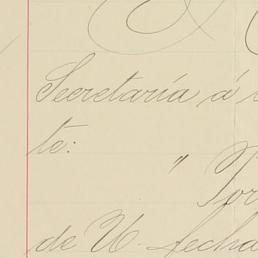 Secretaría á
te:
" Por
de U. fecha